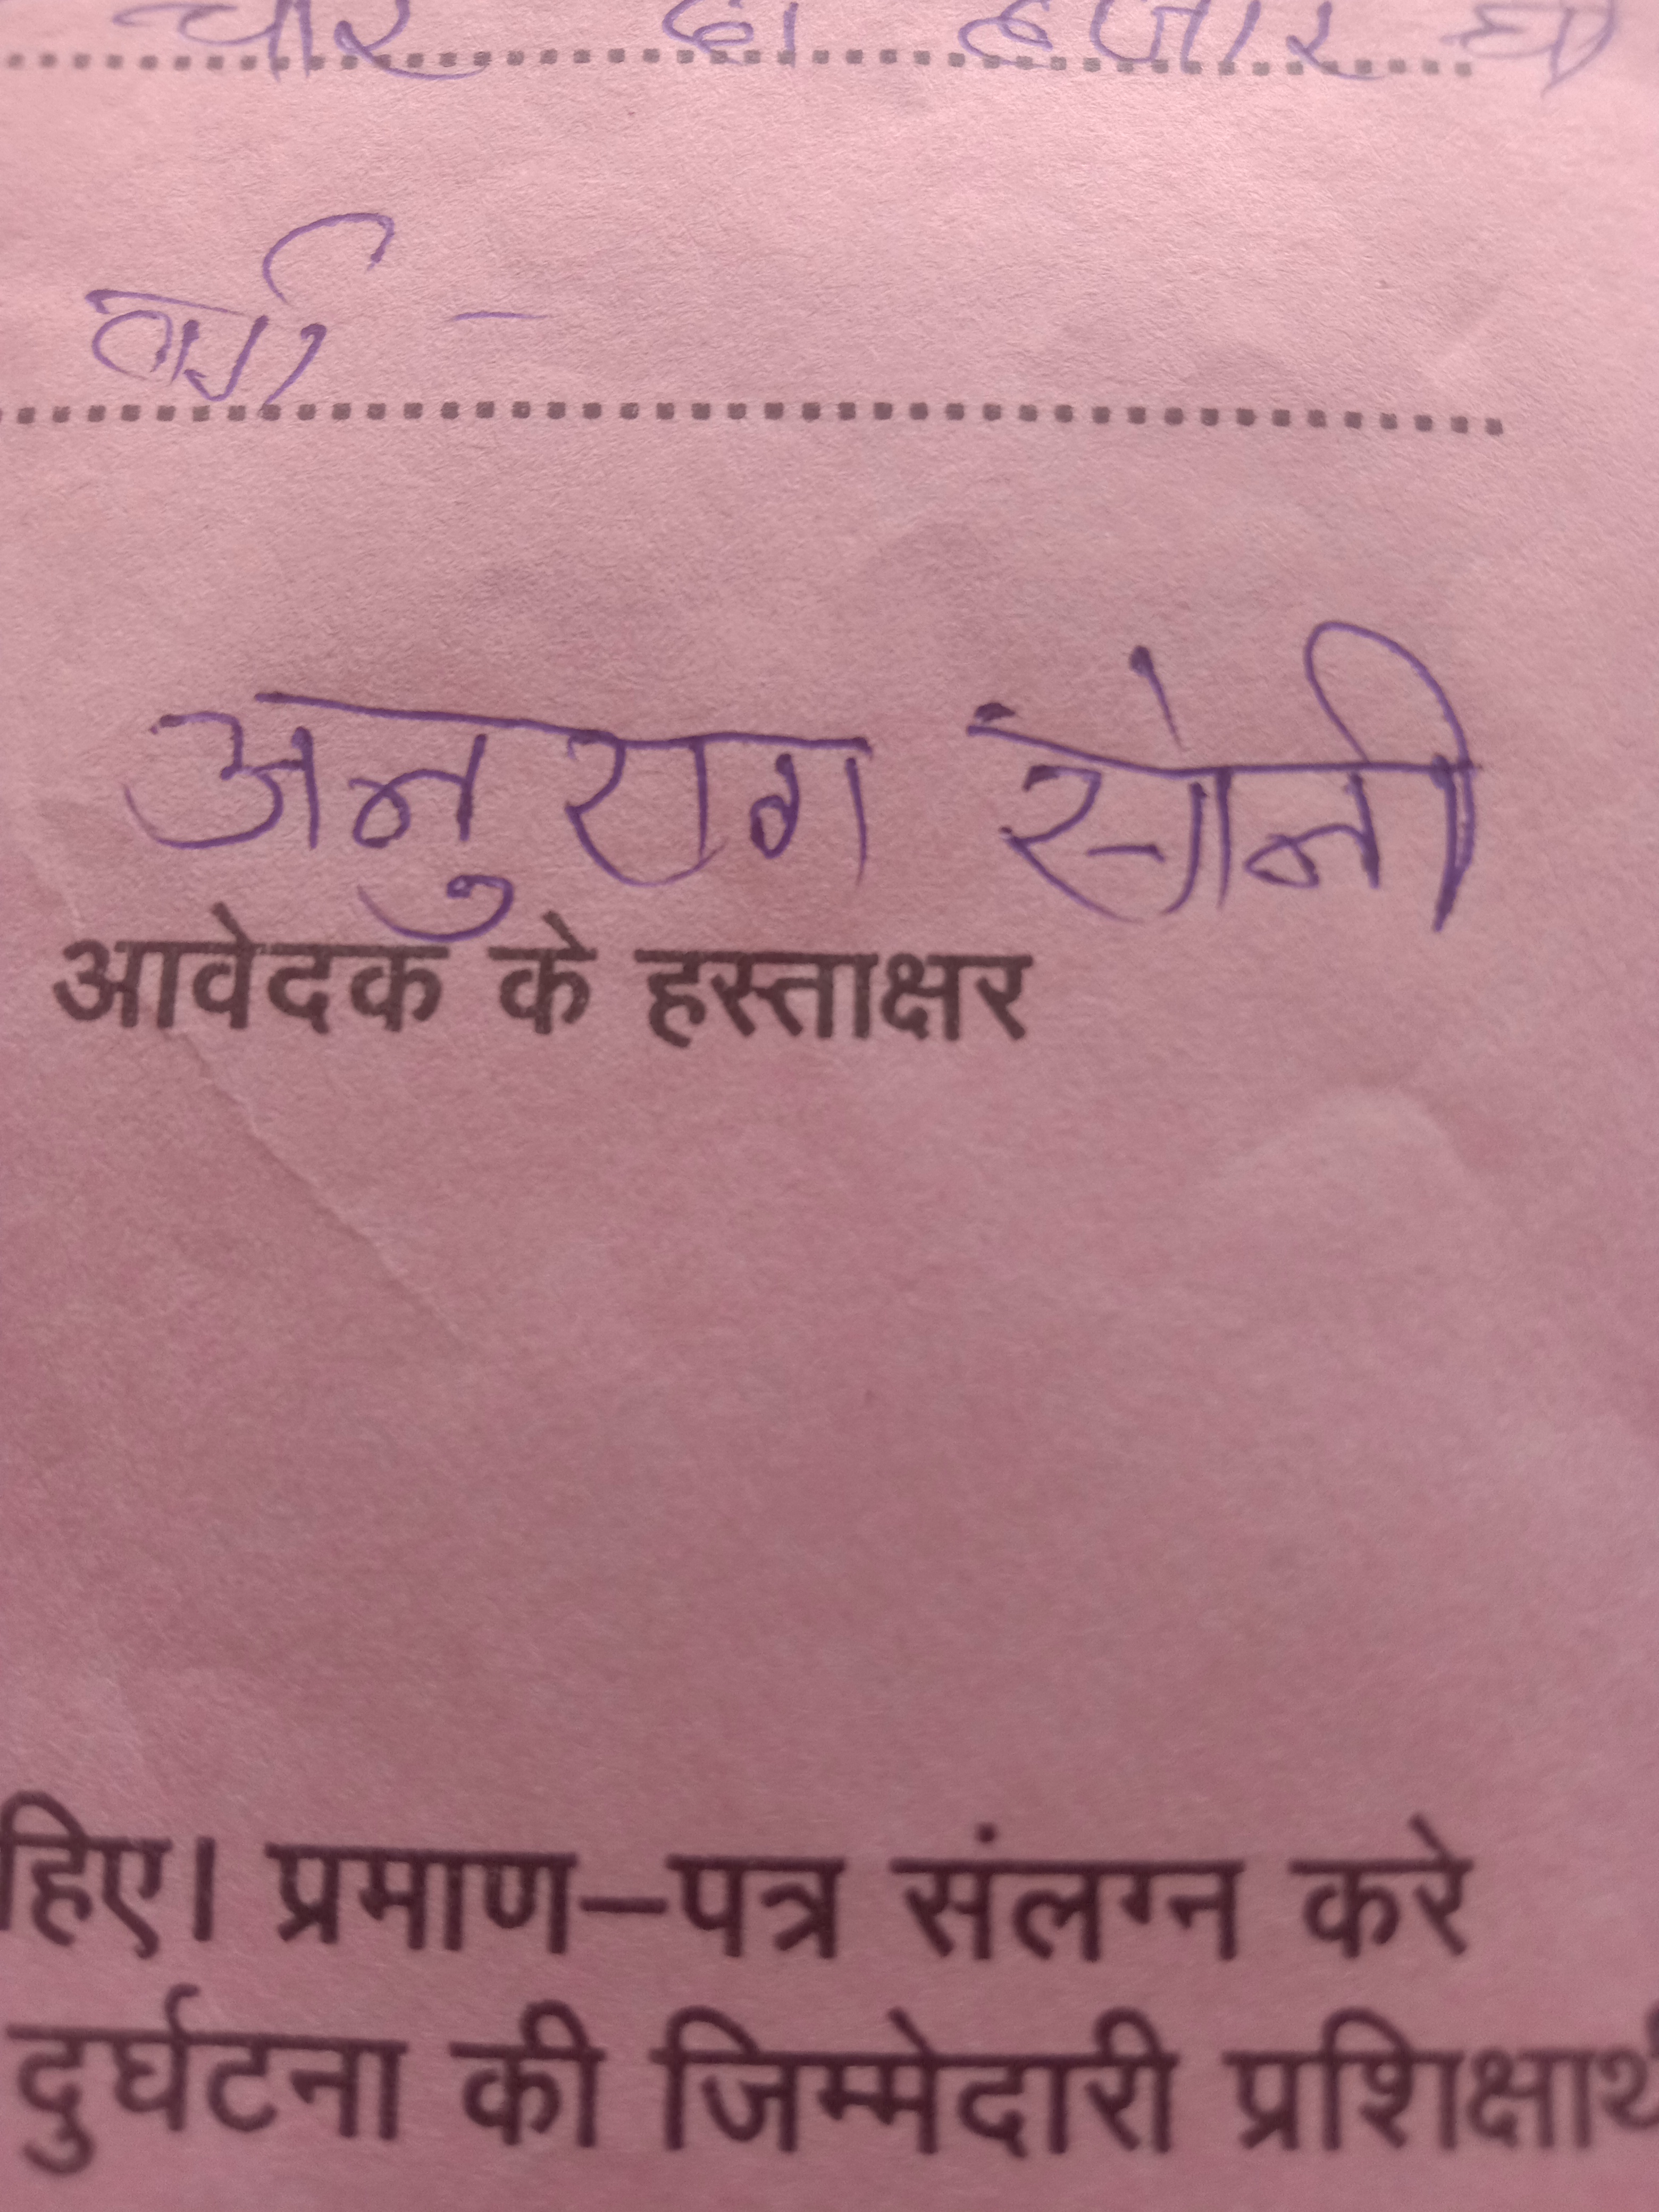 चार दो हजार
अनुराग सोनी
आवेदक के हस्ताक्षर
हिए। प्रमाण–पत्र संलग्न करे
दुर्घटना की जिम्मेदारी प्रशिक्षार्थी